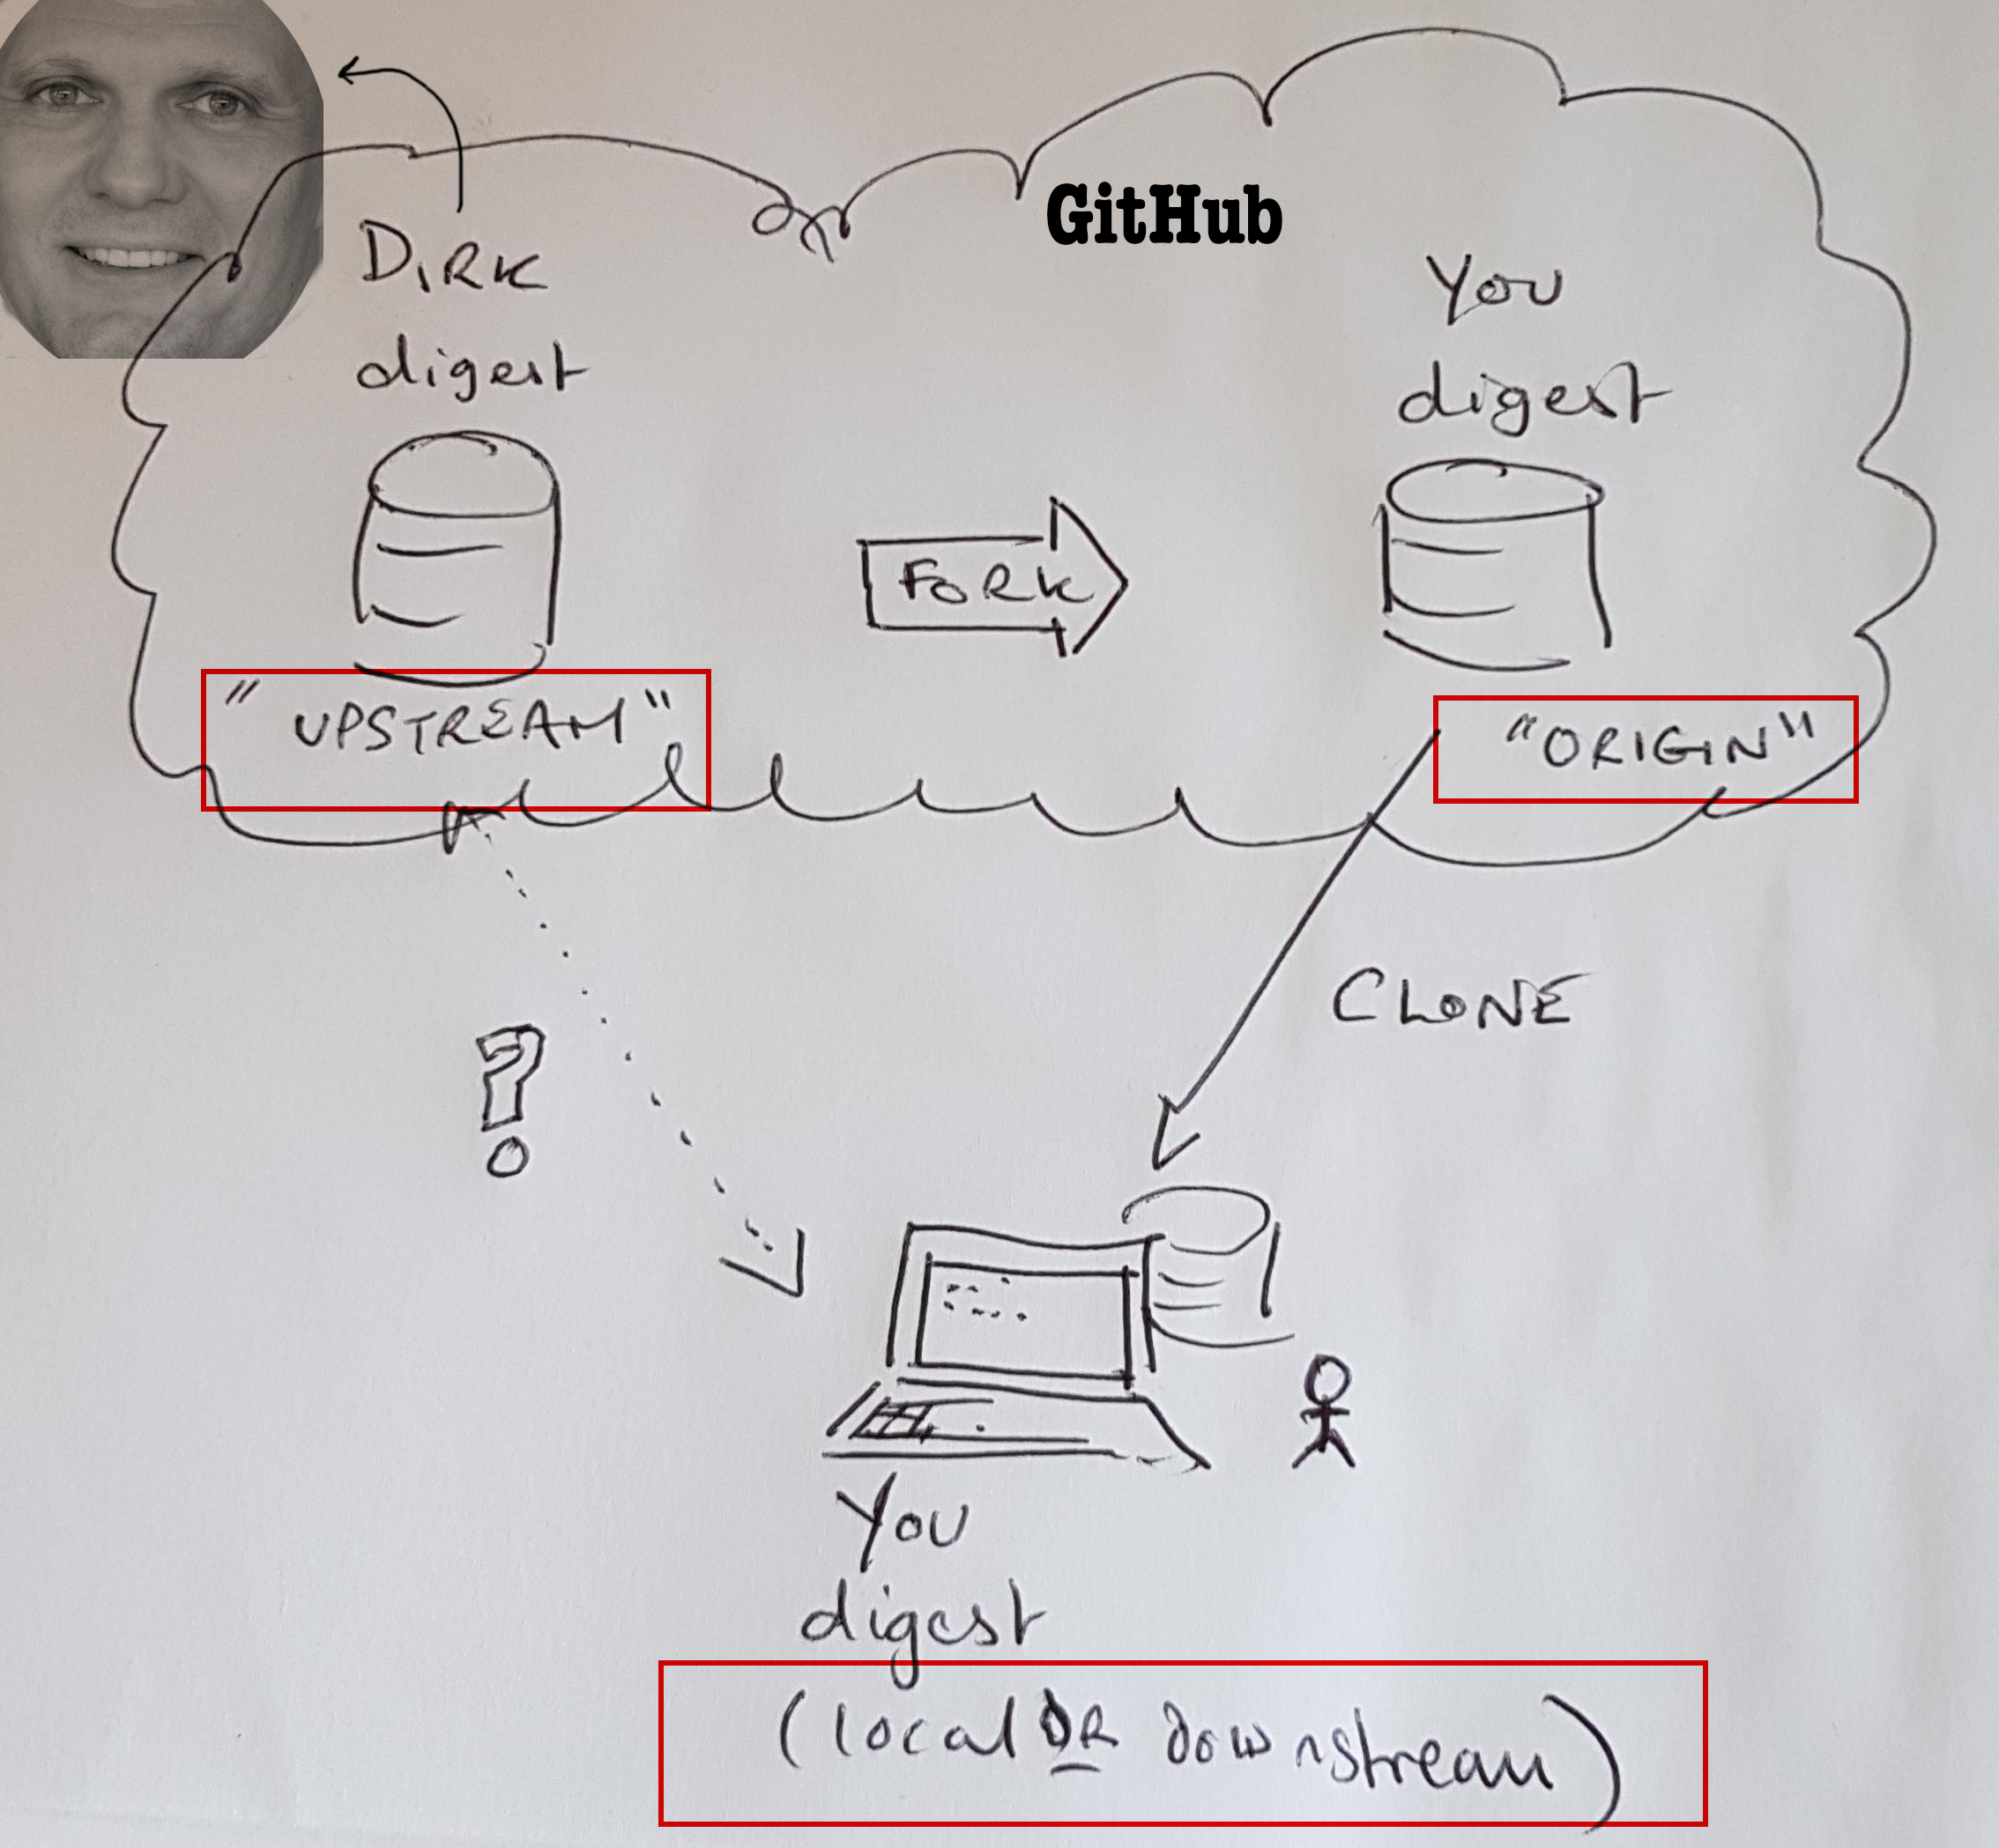 GitHub
DIRK
digest
You
digest
FORK
"UPSTREAM"
"ORIGIN"
CLONE
?
You
digest
(local OR downstream)